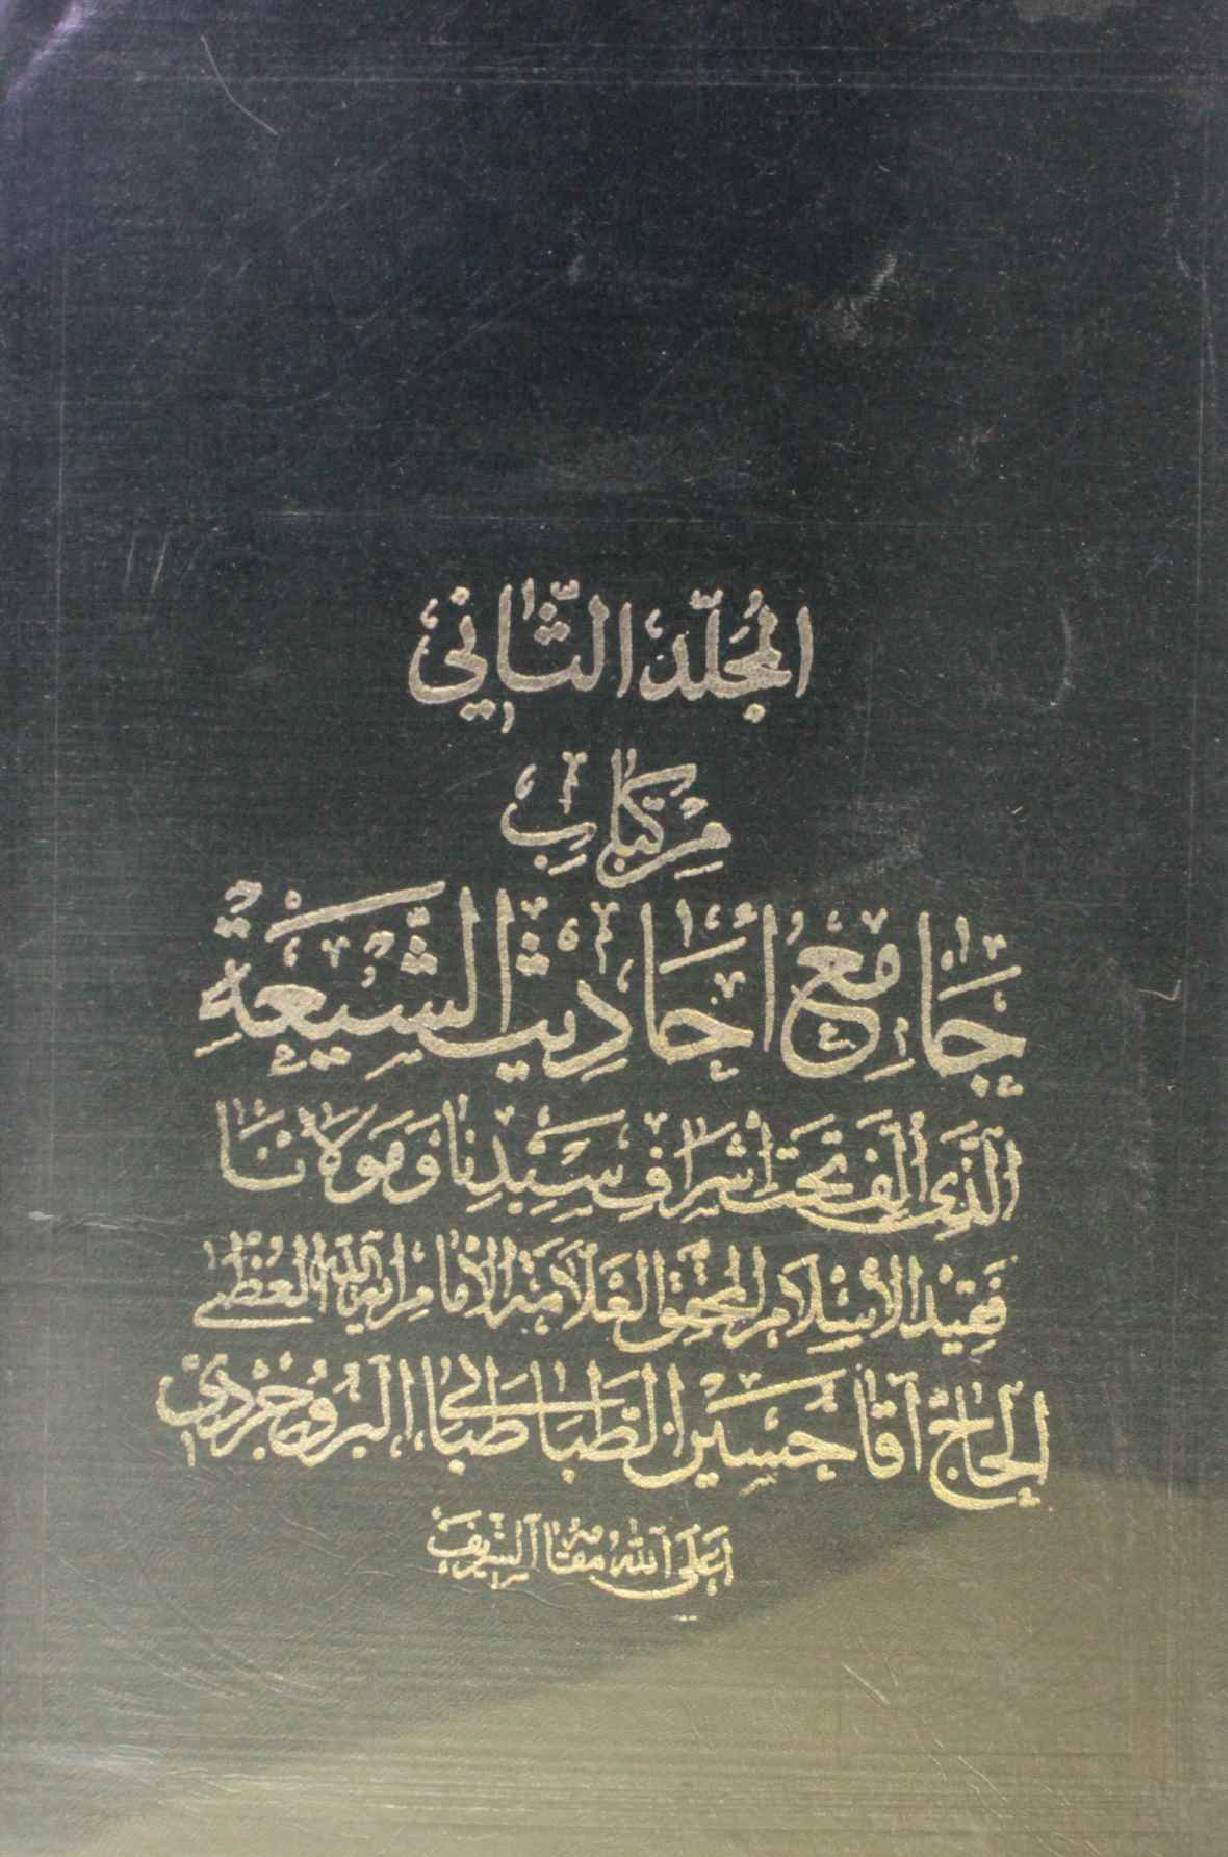 المُجَلَّدُ الثَّانِي
مِنْ كِتَابِ
جَامِعُ أَحَادِيثِ الشِّيعَةِ
الَّذِي أُلِّفَ تَحْتَ إِشْرَافِ سَيِّدِنَا وَمَوْلَانَا
فَقِيدِ الْإِسْلَامِ الْمُحَقِّقِ الْعَلَّامَةِ الْإِمَامِ آيَةِ اللهِ الْعُظْمَى
الْحَاجّ آقَا حُسَيْن الطَّبَاطَبَائِي الْبُرُوجِرْدِي
أَعْلَى اللهُ مَقَامَهُ الشَّرِيفَ